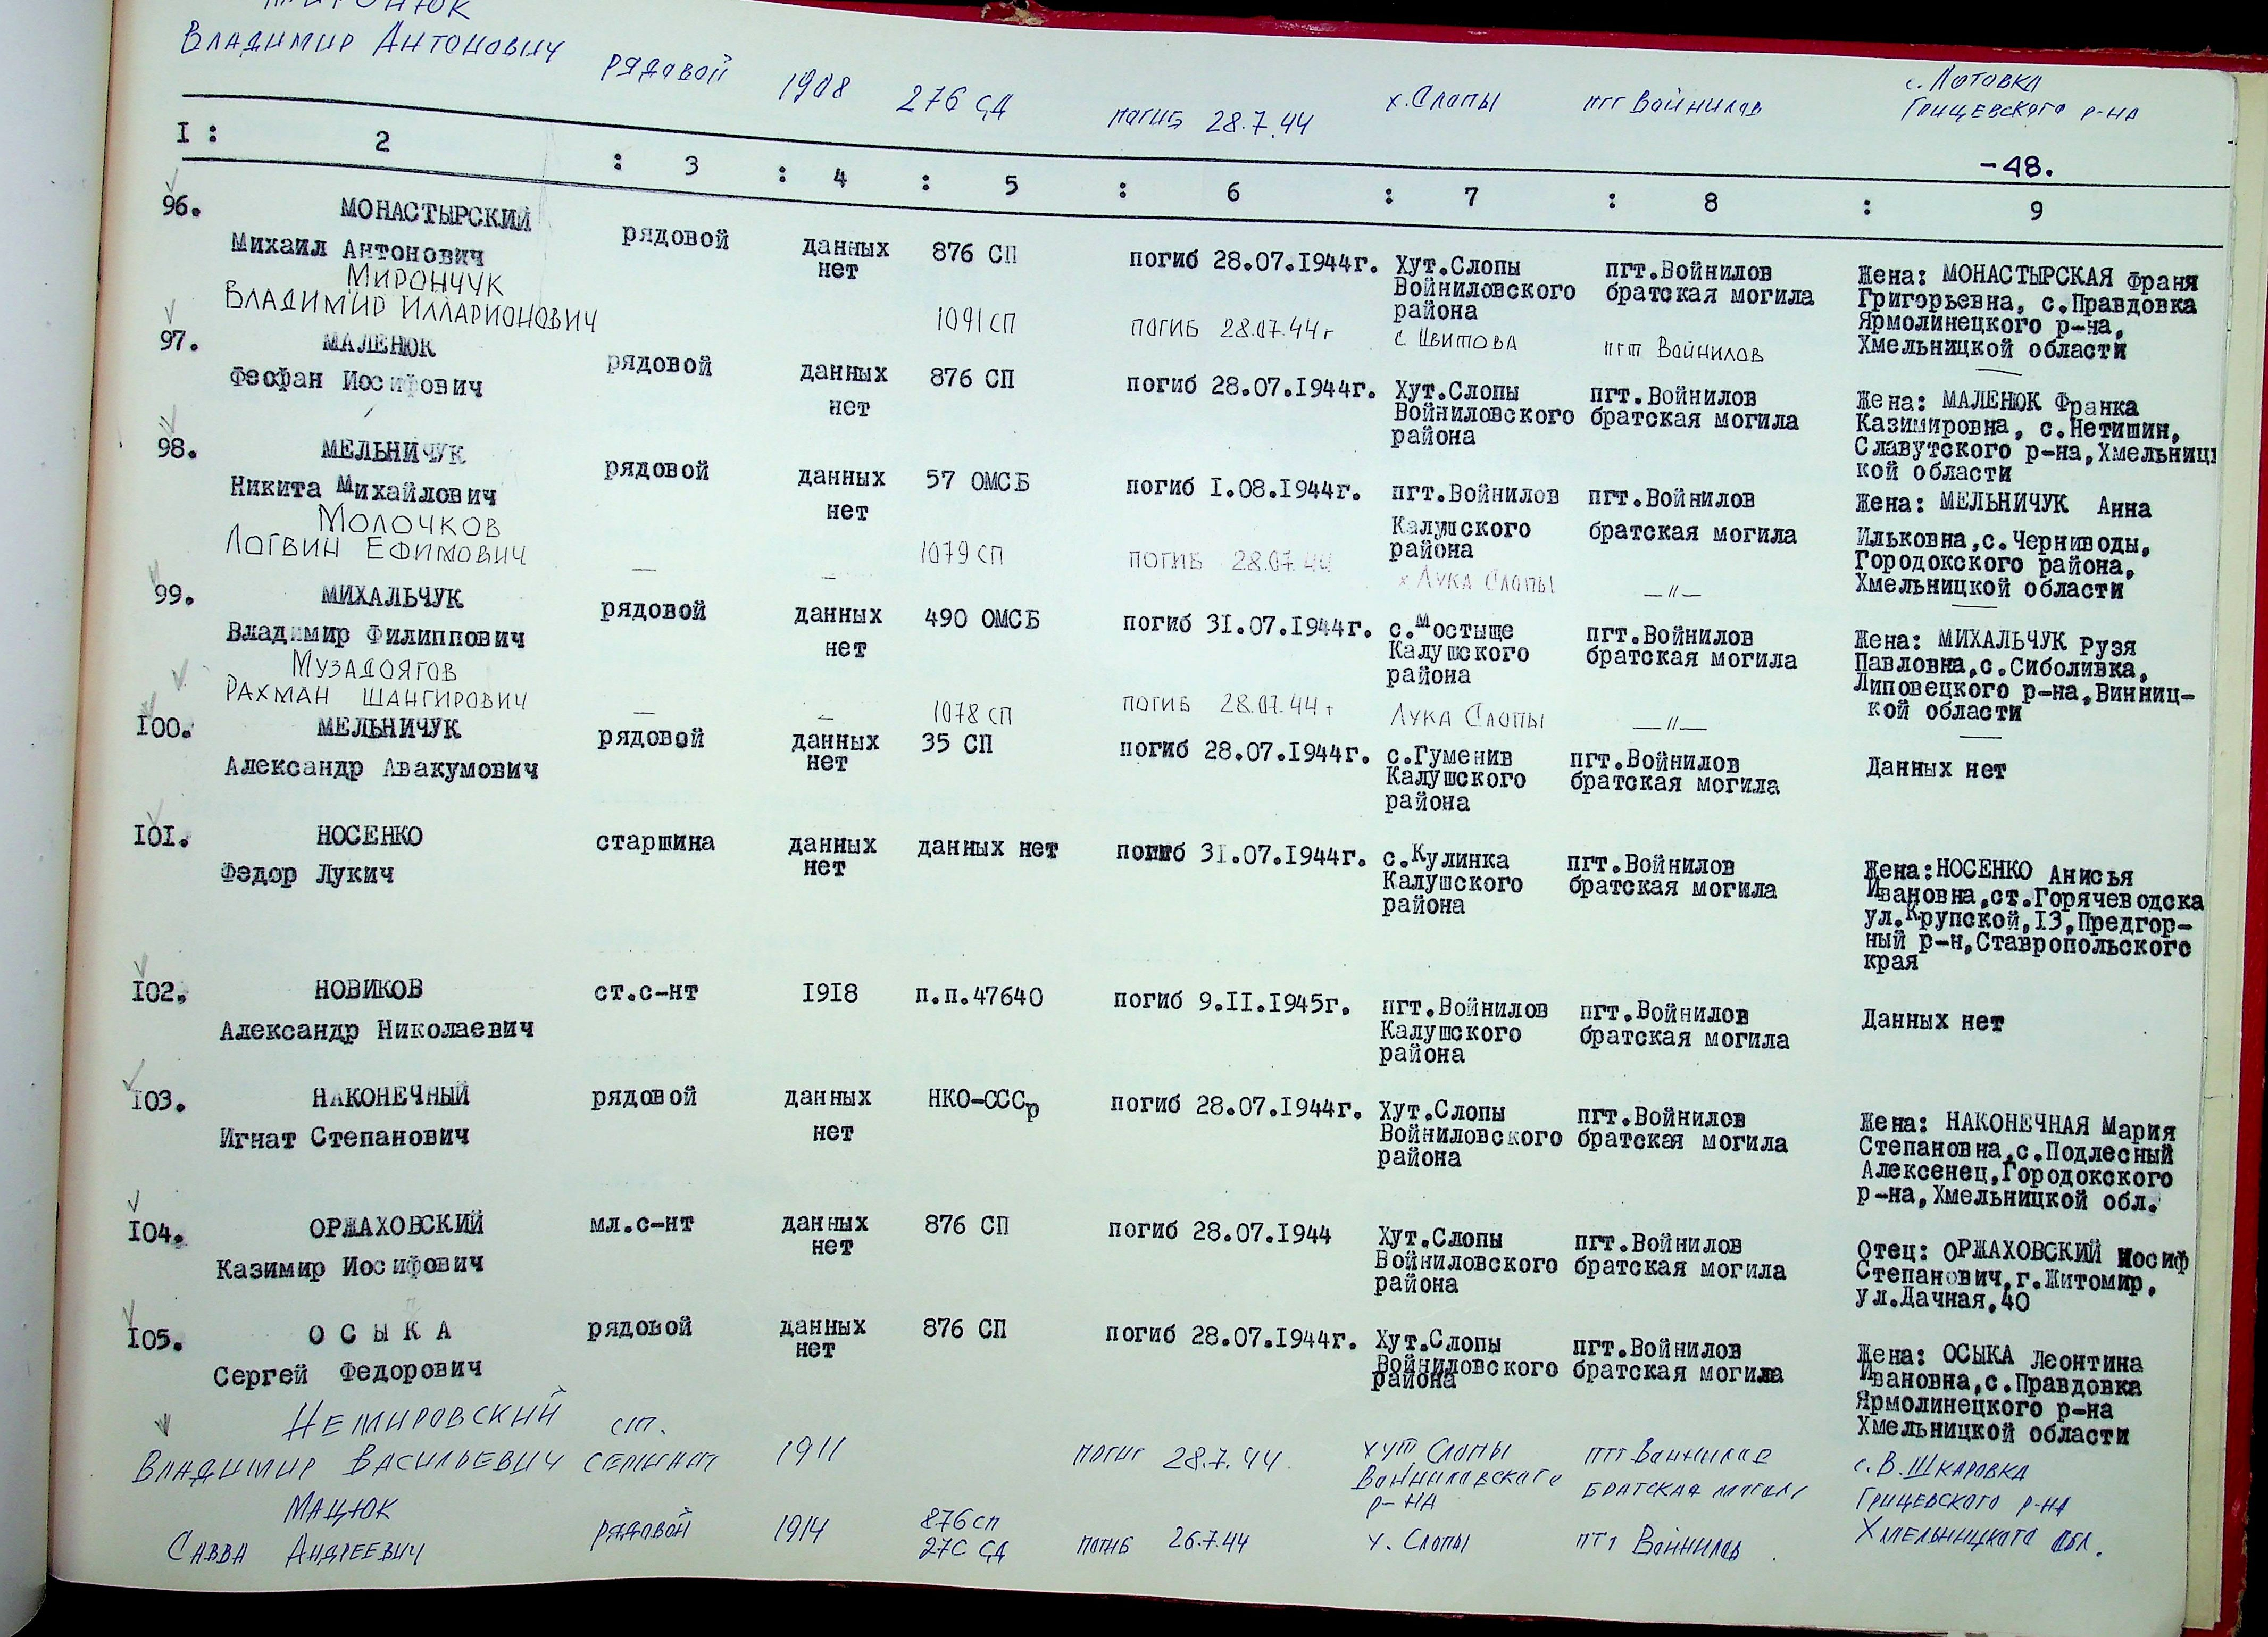 Владимир Антонович рядовой 1908 276 СД погиб 28.7.44 х.Слопы пгт Войнилов с. Лотовка
Грицевского р-на
-48.
I : 2 : 3 : 4 : 5 : 6 : 7 : 8 : 9
96. МОНАСТЫРСКИЙ
Михаил Антонович рядовой данных нет 876 СП погиб 28.07.1944г. Хут.Слопы Войниловского района пгт.Войнилов братская могила Жена: МОНАСТЫРСКАЯ Франя
Григорьевна, с.Правдовка
Ярмолинецкого р-на,
Хмельницкой области
Мирончук
Владимир Илларионович 1091 СП погиб 28.07.44г с. Цвитова пгт Войнилов
97. МАЛЕНЮК
Феофан Иосифович рядовой данных нет 876 СП погиб 28.07.1944г. Хут.Слопы Войниловского района пгт.Войнилов братская могила Жена: МАЛЕНЮК Франка
Казимировна, с.Нетишин,
Славутского р-на,Хмельниц
кой области
98. МЕЛЬНИЧУК
Никита Михайлович рядовой данных нет 57 ОМСБ погиб I.08.1944г. пгт.Войнилов Калушского района пгт.Войнилов братская могила Жена: МЕЛЬНИЧУК Анна
Ильковна,с.Черниводы,
Городокского района,
Хмельницкой области
Молочков
Логвин Ефимович — — 1079 СП погиб 28.07.44 х Лука Слопы —"—
99. МИХАЛЬЧУК
Владимир Филиппович рядовой данных нет 490 ОМСБ погиб 31.07.1944г. с.Мостыще Калушского района пгт.Войнилов братская могила Жена: МИХАЛЬЧУК Рузя
Павловна,с.Сиболивка,
Липовецкого р-на,Винниц-
кой области
Музадоягов
Рахман Шангирович — — 1078 СП погиб 28.07.44 г Лука Слопы —"—
I00. МЕЛЬНИЧУК
Александр Авакумович рядовой данных нет 35 СП погиб 28.07.1944г. с.Гуменив Калушского района пгт.Войнилов братская могила Данных нет
I0I. НОСЕНКО
Федор Лукич старшина данных нет данных нет погиб 31.07.1944г. с.Кулинка Калушского района пгт.Войнилов братская могила Жена:НОСЕНКО Анисья
Ивановна,ст.Горячеводска
ул.Крупской,13,Предгор-
ный р-н,Ставропольского
края
I02. НОВИКОВ
Александр Николаевич ст.с-нт 1918 п.п.47640 погиб 9.II.1945г. пгт.Войнилов Калушского района пгт.Войнилов братская могила Данных нет
I03. НАКОНЕЧНЫЙ
Игнат Степанович рядовой данных нет НКО-СССр погиб 28.07.1944г. Хут.Слопы Войниловского района пгт.Войнилов братская могила Жена: НАКОНЕЧНАЯ Мария
Степановна,с.Подлесный
Алексенец,Городокского
р-на,Хмельницкой обл.
I04. ОРЖАХОВСКИЙ
Казимир Иосифович мл.с-нт данных нет 876 СП погиб 28.07.1944 Хут.Слопы Войниловского района пгт.Войнилов братская могила Отец: ОРЖАХОВСКИЙ Иосиф
Степанович,г.Житомир,
ул.Дачная,40
I05. О С Ы К А
Сергей Федорович рядовой данных нет 876 СП погиб 28.07.1944г. Хут.Слопы Войниловского района пгт.Войнилов братская могила Жена: ОСЫКА Леонтина
Ивановна,с.Правдовка
Ярмолинецкого р-на
Хмельницкой области
Немировский
Владимир Васильевич ст. сержант 1911 погиб 28.7.44 хут Слопы Войниловского р-на пгт Войнилов братская могила с. В. Шкаровка
Грицевского р-на
Хмельницкого обл.
Мацюк
Савва Андреевич рядовой 1914 876 сп 276 СД погиб 26.7.44 х. Слопы пгт Войнилов